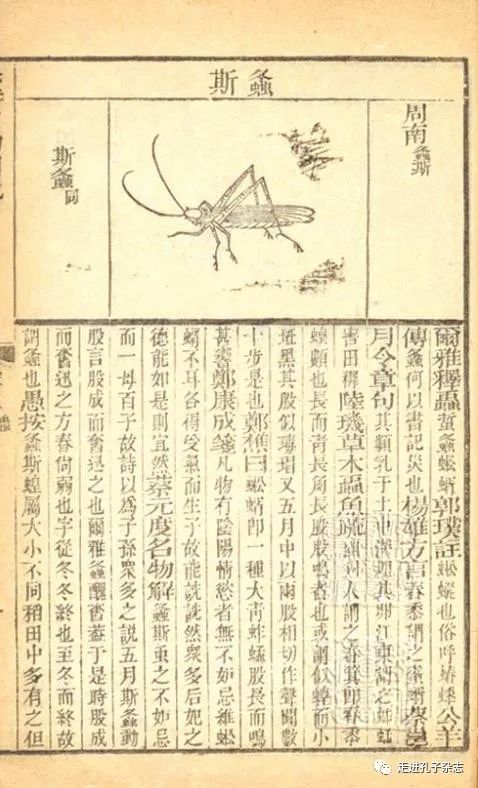 螽斯
周南螽斯
斯螽同
爾雅釋蟲蜤螽蜙蝑郭璞註蜙蝑也俗呼蝽公羊
傳螽何以書記災也楊雄方言舂黍謂之蝑蔡邕
月令章句其類乳于土中深埋其卵江東謂之蚱蜢
害田穉陸璣草木蟲魚疏幽州人謂之舂箕即舂黍
蝗類也長而青長角長股股鳴者也或謂似蝗而小
斑黑其股似瑇瑁又五月中以兩股相切作聲聞數
十步是也鄭樵曰蜙蝑即一種大青蚱蜢股長而鳴
甚響鄭康成箋凡物有陰陽情慾者無不妒忌維蜙
蝑不耳各得受氣而生子故能詵詵然衆多后妃之
德能如是則宜然蔡元度名物解螽斯蟲之不妒忌
而一母百子故詩以爲子孫衆多之說五月斯螽動
股言股成而奮迅之也爾雅螽醜奮蓋于是時股成
而奮迅之方春尚弱也字從冬冬終也至冬而終故
謂螽也愚按螽斯蝗屬大小不同稻田中多有之但
走进孔子杂志